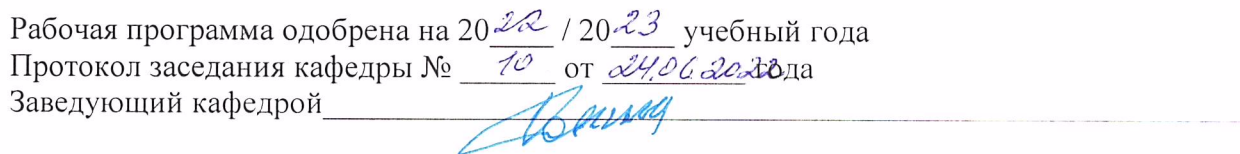 Рабочая программа одобрена на 2022 / 2023 учебный года
Протокол заседания кафедры № 10 от 24.06.2022 года
Заведующий кафедрой